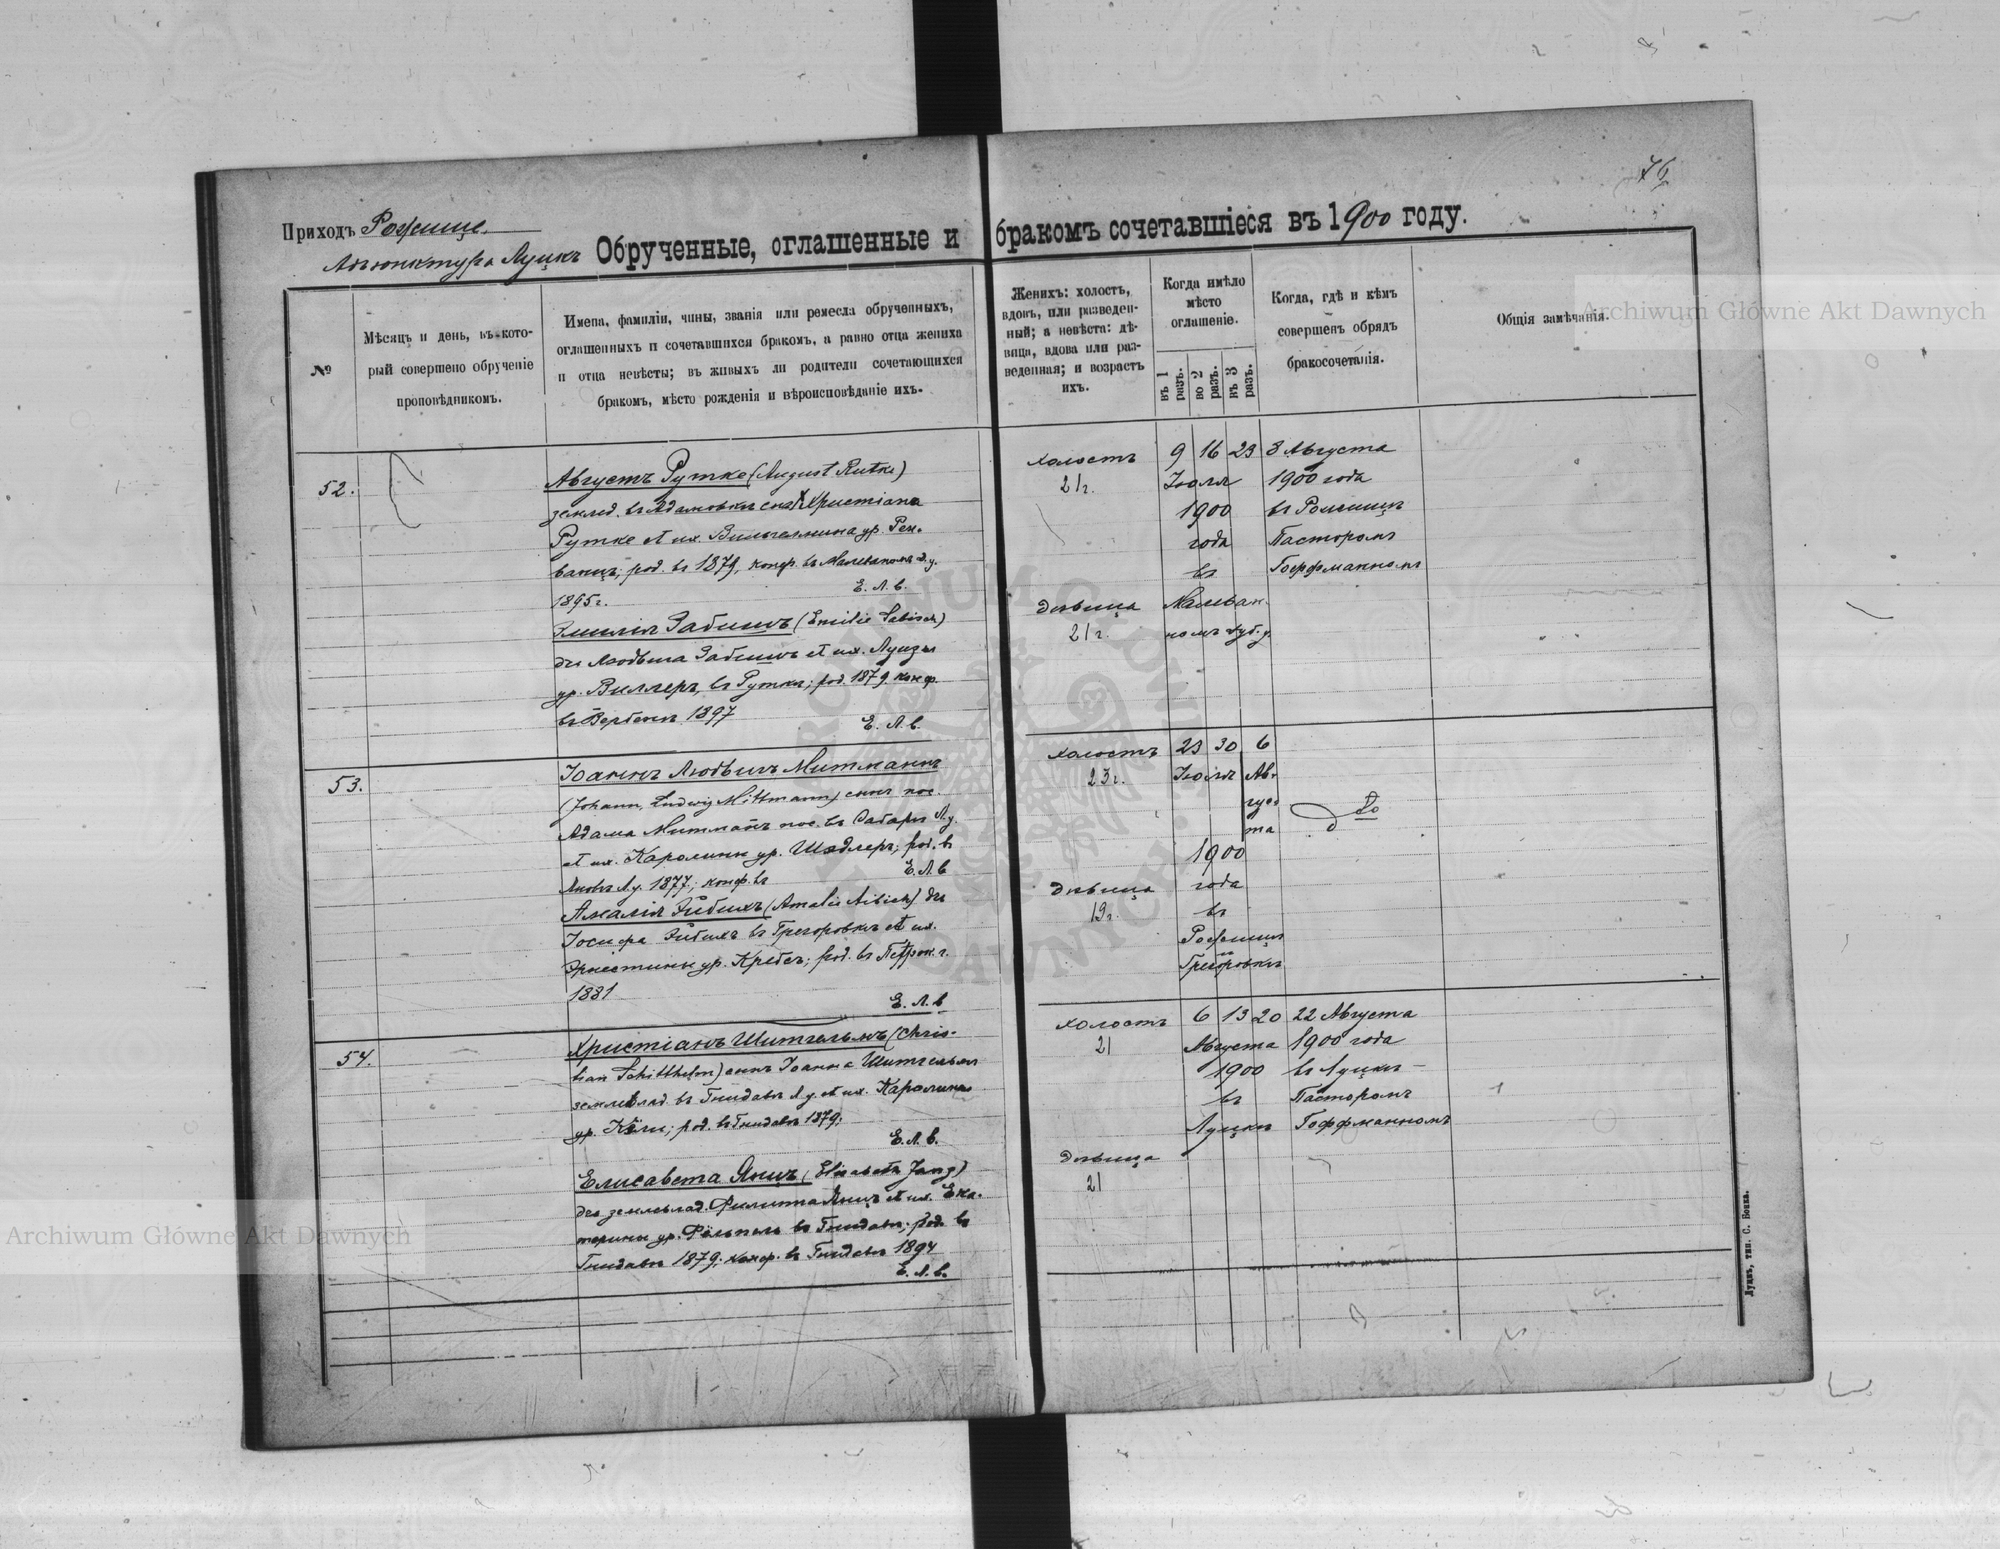 76
Приходъ Рожище.
Адъюнктура Луцкъ
Обрученные, оглашенные и бракомъ сочетавшіеся въ 1900 году.
№
Мѣсяцъ и день, въ кото-
рый совершено обрученіе
проповѣдникомъ.
Имена, фамиліи, чины, званія или ремесла обрученныхъ,
оглашенныхъ и сочетавшихся бракомъ, а равно отца жениха
и отца невѣсты; въ живыхъ ли родители сочетающихся
бракомъ, мѣсто рожденія и вѣроисповѣданіе ихъ.
Женихъ: холостъ,
вдовъ, или разведен-
ный; а невѣста: дѣ-
вица, вдова или раз-
веденная; и возрастъ
ихъ.
Когда имѣло
мѣсто
оглашеніе.
въ 1 разъ.
во 2 разъ.
въ 3 разъ.
Когда, гдѣ и кѣмъ
совершенъ обрядъ
бракосочетанія.
Общія замѣчанія.
52.
Августъ Рутке (August Rutke)
землед. въ Адамовкѣ сна Христіана
Рутке и Вильгельмина ур.
род. въ 1879, конф. въ
1895 г.
Е. Л. в.
Эмилія Забишъ (Emilie Sabisch)
Людвига Забишъ Луизы
ур. Виллеръ, въ род. 1879 конф.
въ Вербенъ 1897
Е. Л. в.
холостъ
21 г.
дѣвица
21 г.
9 16 23
Іюля
1900
года
въ
8 Августа
1900 года
въ Рожищѣ
Пасторомъ
Гоффманномъ
53.
Іоаннъ Людвигъ Митманнъ
(Johann Ludwig Mittmann) сынъ пос.
Адама Митманъ пос. въ Л. у.
Каролины ур. Шэдлеръ; род. въ
1877; конф. въ
Е. Л. в
Амалія Эйбихъ (Amalie Aibich) дч
Іосифа Эйбихъ въ Грегоровкѣ
Эрнестины ур. Кребсъ; род. въ
1881
Е. Л. в
холостъ
23 г.
дѣвица
19 г.
23 30 6
Іюля Ав-
гус-
та
1900
года
въ
Рожищѣ
Грегоровкѣ
do
54.
Христіанъ Шитгельмъ (Chris-
tian Schitthelm) сынъ Іоанна Шитгельмъ
землевлад. въ Гнидавѣ Л. у. Каролины
ур. род. въ Гнидавѣ 1879;
Е. Л. в.
Елисавета Янцъ (Elisabeth Janz)
дч землевлад. Филиппа Янцъ Ека-
терины ур. въ Гнидавѣ; род. въ
Гнидавѣ 1879; конф. въ Гнидавѣ 1894
Е. Л. в.
холостъ
21
дѣвица
21
6 13 20
Августа
1900
въ
Луцкѣ
22 Августа
1900 года
въ Луцкѣ
Пасторомъ
Гоффманномъ
Луцкъ, тип. С. Бонка.
Archiwum Główne Akt Dawnych
Archiwum Główne Akt Dawnych